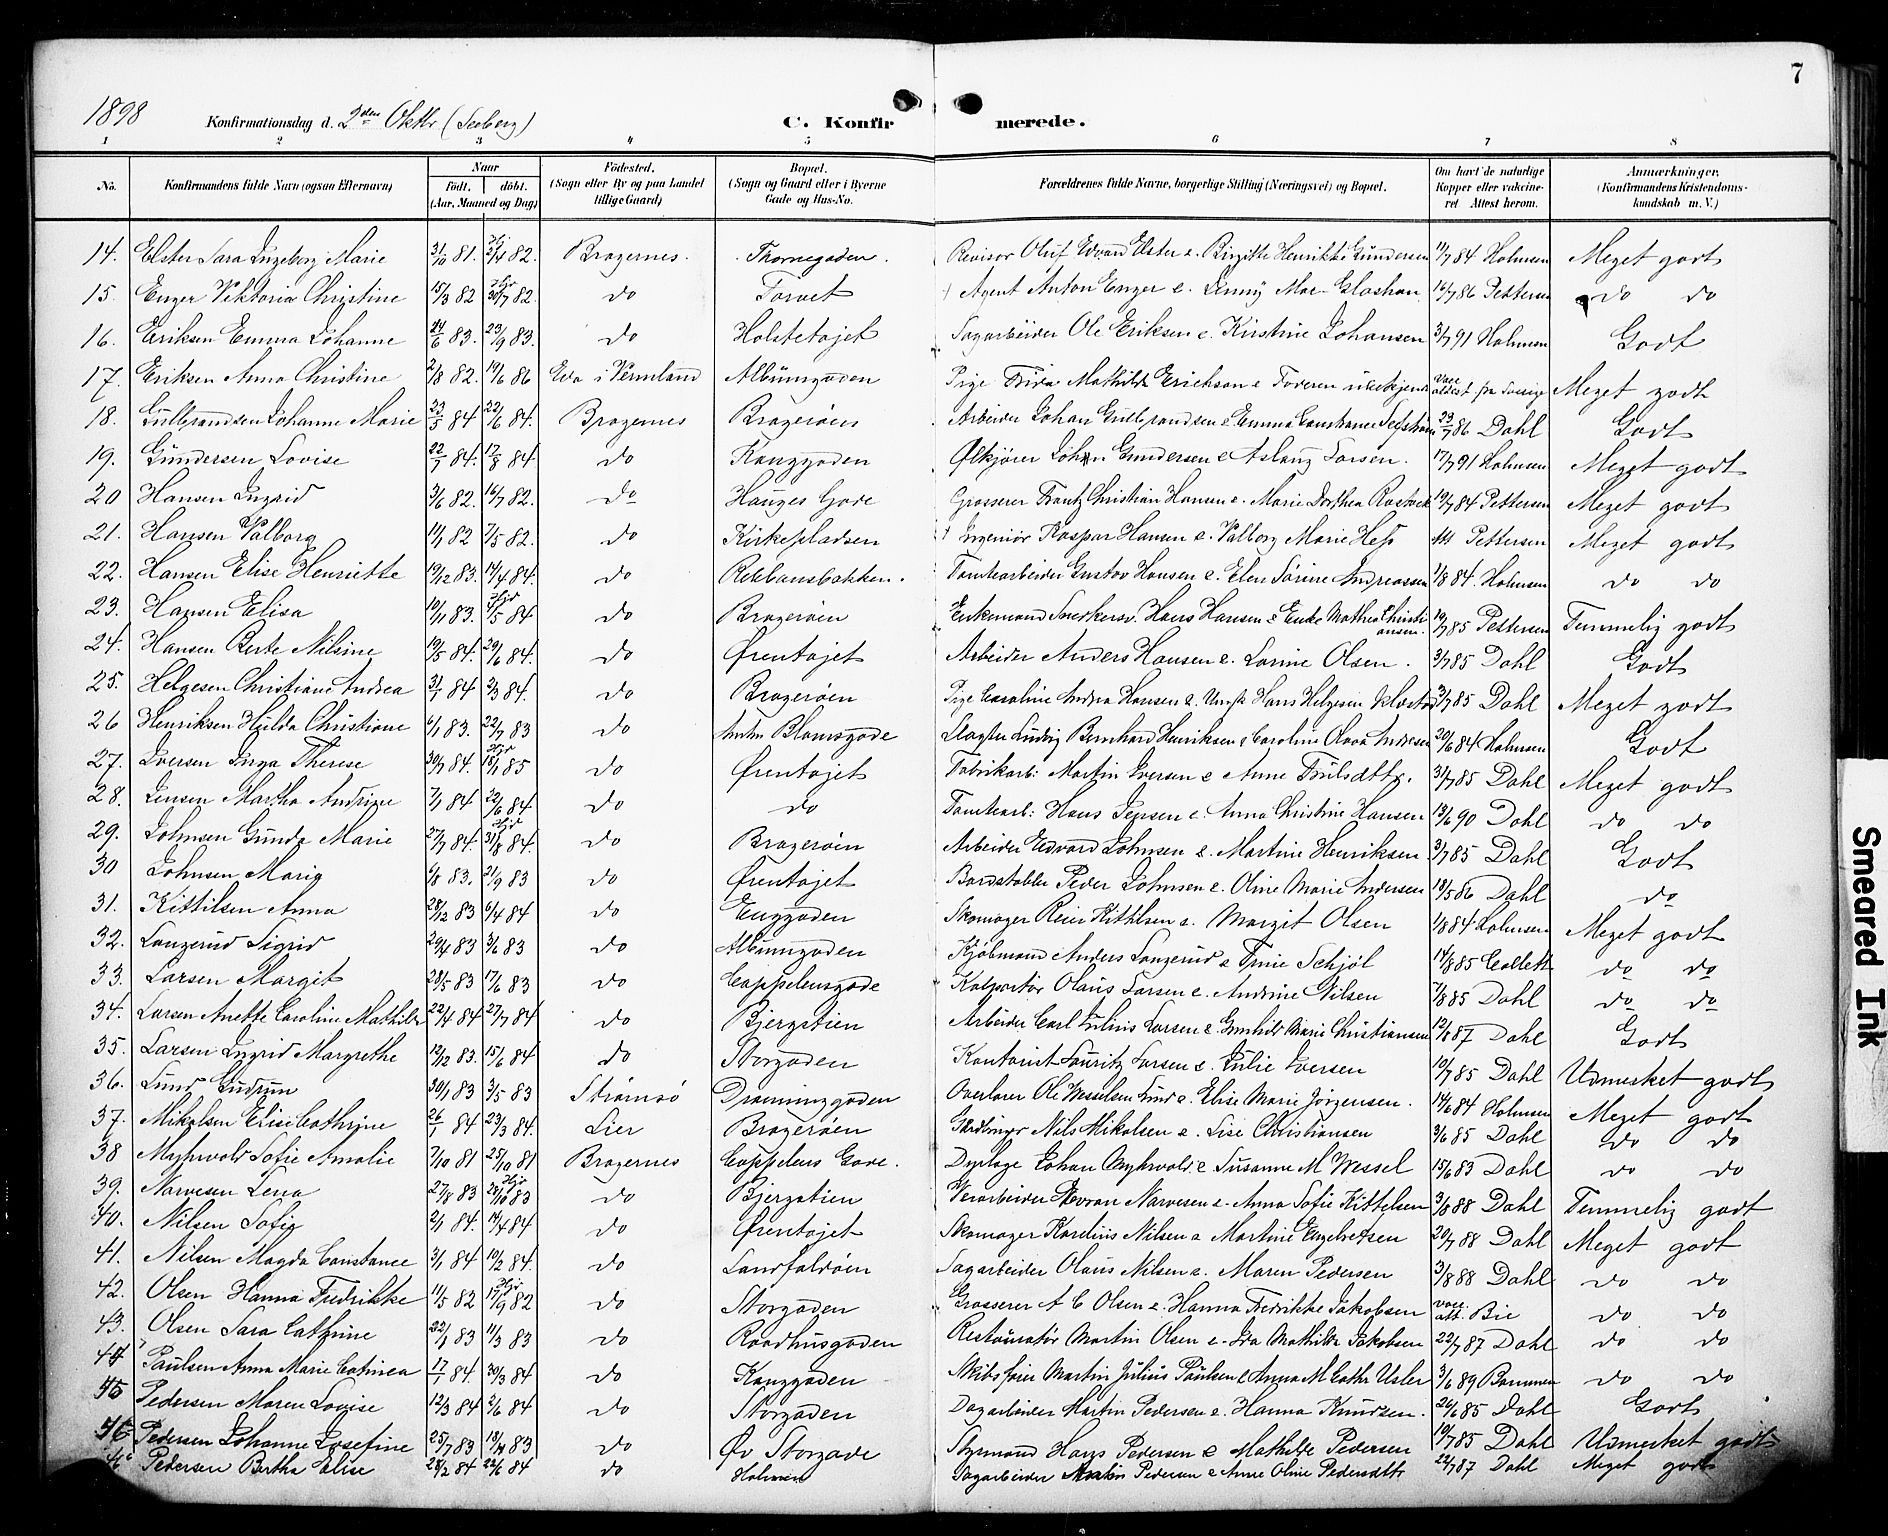 7
1898 Konfirmationsdag d. 2den Oktbr (Seeberg) C. Konfirmerede.
1 2 3 4 5 6 7 8
No. Konfirmandens fulde Navn (ogsaa Efternavn) Naar födt. döbt. (Aar, Maaned og Dag) Födested. (Sogn eller By og paa Landet tillige Gaard) Bopæl. (Sogn og Gaard eller i Byerne Gade og Hus-No. Forældrenes fulde Navne, borgerlige Stilling (Næringsvei) og Bopæl. Om havt de naturlige Kopper eller vakcineret Attest herom. Anmærkninger. (Konfirmandens Kristendomskundskab m. V.)
14. Elster Sara Ingeborg Marie 31/10 81. 82. Bragernes. Thornegaden. Revisor Oluf Edvard Elster e. Birgitte Henrikke Gundersen 11/7 84 Holmsen Meget godt
15. Enger Viktoria Christine 15/3 82 Hjd 30/7 82. do Torvet Agent Anton Enger e. Fanny Mac-Glashan 16/7 86 Pettersen do do
16. Eriksen Emma Johanne 24/6 83. 23/9 83. do Holstetøjet Sagarbeider Ole Eriksen e. Kirstine Johansen 3/7 91 Holmsen Godt
17. Eriksen Anna Christine 2/8 82. 19/6 86 Eda i Vermland Albumgaden Pige Frida Mathilda Erickson e Faderen Vacc attest fra Sverige Meget godt
18. Gulbrandsen Johanne Marie 23/5 84 22/6 84. Bragernes Bragerøen Arbeider Johan Gulbrandsen e Emma Constance 23/7 86 Dahl Godt
19. Gundersen Lovise 22/7 84. 17/8 84. do Konggaden Ølkjører Johan Gundersen e Aslaug Larsen. 17/7 91 Holmsen Meget godt
20 Hansen Ingrid 3/6 82. 16/7 82. do Hauges Gade Grosserer Frantz Christian Hansen e. Marie Dorthea Rostock 19/7 84 Pettersen Meget godt
21. Hansen Valborg 11/1 82 7/5 82. do Kirkepladsen Ingeniør Kaspar Hansen e. Valborg Marie Hess att Pettersen Meget godt
22. Hansen Elise Henriette 19/12 83. 14/4 84. do Rebbansbakken. Tomtearbeider Gustav Hansen e. Elen Sørine Andreassen 1/8 84. Holmsen do do
23. Hansen Elisa 19/1 83. Hjd 4/5 84 do Bragerøen Enkemand Snedkersv. Hans Hansen e Enke Mathea Christiansen. 19/7 85 Pettersen Temmelig godt
24. Hansen Berte Nilsine 19/5 84. 29/6 84. do Ørentøjet Arbeider Anders Hansen e. Lorine Olsen. 3/7 85 Dahl Godt
25. Helgesen Christiane Andrea 31/1 84 2/3 84. do Bragerøen Pige Caroline Andrea Hansen e. Ungk Hans Helgesen 3/7 85 Dahl Meget godt
26 Henriksen Hulda Christiane 6/1 83. 22/7 83 do Blomsgade Slagter Ludvig Bernhard Henriksen e Caroline Olava Andresen 20/6 84 Holmsen Godt
27. Iversen Inga Therese 30/7 84. Hjd 18/1 85 do Ørentøjet Fabrikarb: Martin Iversen e Anne Truls dttr. 31/7 85 Dahl Meget godt
28. Jensen Martha Andrine 7/1 84 22/6 84. do do Tomtearb: Hans Jensen e Anna Christine Hansen 13/6 90 Dahl do do
29. Johnsen Gunda Marie 27/7 84. Hjd 31/8 84. do Bragerøen Arbeider Edvard Johnsen e. Martine Henriksen 3/7 85 Dahl Godt
30 Johnsen Marie 6/8 83. 21/9 83 do Ørentøjet Bordstabler Peder Johnsen e. Oline Marie Andersen 18/5 86 Dahl do
31. Kittilsen Anna 28/12 83 6/4 84 do Enggaden Skomager Reier Kittilsen e. Margit Olsen 1/8 84 Holmsen Meget godt
32. Langerud Sigrid 29/4 83 3/6 83 do Albumgaden Kjøbmand Anders Langerud e Trine Schjøl 14/8 85 Collett do do
33. Larsen Margit 28/5 83 17/6 83 do Cappelensgade Kolportør Olaus Larsen e. Andrine Nilsen 7/8 85 Dahl do do
34. Larsen Anette Caroline Mathilde 22/4 84 27/7 84 do Bjergstien Arbeider Carl Julius Larsen e. Gunhild Marie Christiansen 12/8 87 Dahl Godt
35. Larsen Ingrid Margrethe 12/12 83. 15/6 84 do Storgaden Kontorist Lauritz Larsen e. Julie Iversen 10/7 85 Dahl Udmerket godt
36. Lund Gudrun 30/1 83 3/5 83 Strømsø Dronninggaden Overlærer Ole Wesselsen Lund e. Elise Marie Jørgensen. 14/6 84 Holmsen Meget godt
37. Mikalsen Elise Cathrine 26/1 84 23/3 84. Lier Bragerøen Nils Mikalsen e. Lise Christiansen 3/6 85 Dahl do do
38 Myhrvold Sofie Amalie 7/10 81 25/10 81 Bragernes Cappelens Gade. Dyrlæge Johan Myhrvold e Susanne M Wessel 15/6 83 Dahl do do
39. Narvesen Lena 27/8 83 Hjd 28/10 83 do Bjergstien Veiarbeider Halvran Narvesen e. Anna Sofie Kittelsen 3/8 88 Dahl Temmelig godt
40. Nilsen Sofie 2/1 84. 14/4 84 do Ørentøjet Skomager Karelius Nilsen e Martine Engebretsen 20/7 88 Dahl Meget godt
41. Nilsen Magda Constance 3/1 84 10/2 84. do Landfaldøen Sagarbeider Olaus Nilsen e. Maren Pedersen 3/8 88 Dahl do do
42. Olsen Hanna Fredrikke 11/5 82 Hjd 17/9 82 do Storgaden Grosserer A C Olsen e. Hanna Fredrikke Jakobsen vacc. att. Bie do do
43. Olsen Sara Cathrine 22/1 83 11/3 83 do Raadhusgaden Restauratør Martin Olsen e. Ida Mathilde Jakobsen 22/7 87 Dahl do do
44 Paulsen Anna Marie Catinca 17/1 84 30/3 84 do Konggaden Skibsfører Martin Julius Paulsen e Anna M Cathr Usler 3/6 89 do do
45 Pedersen Maren Lovise 12/3 84 2/6 84 do Storgaden Dagarbeider Martin Pedersen e. Hanna Knudsen. 26/6 85 Dahl Godt
46 Pedersen Johanne Josefine 25/7 83 18/11 83 do Øv Storgade Styrmand Hans Pedersen e Mathilde Pedersen 19/7 85 Dahl Udmerket godt
Pedersen Bertha Elise 28/2 84 22/6 84 do Holmen Sagarbeider Anton Pedersen e Anne Oline Pedersdttr 22/7 87 Dahl Meget godt
Smeared Ink